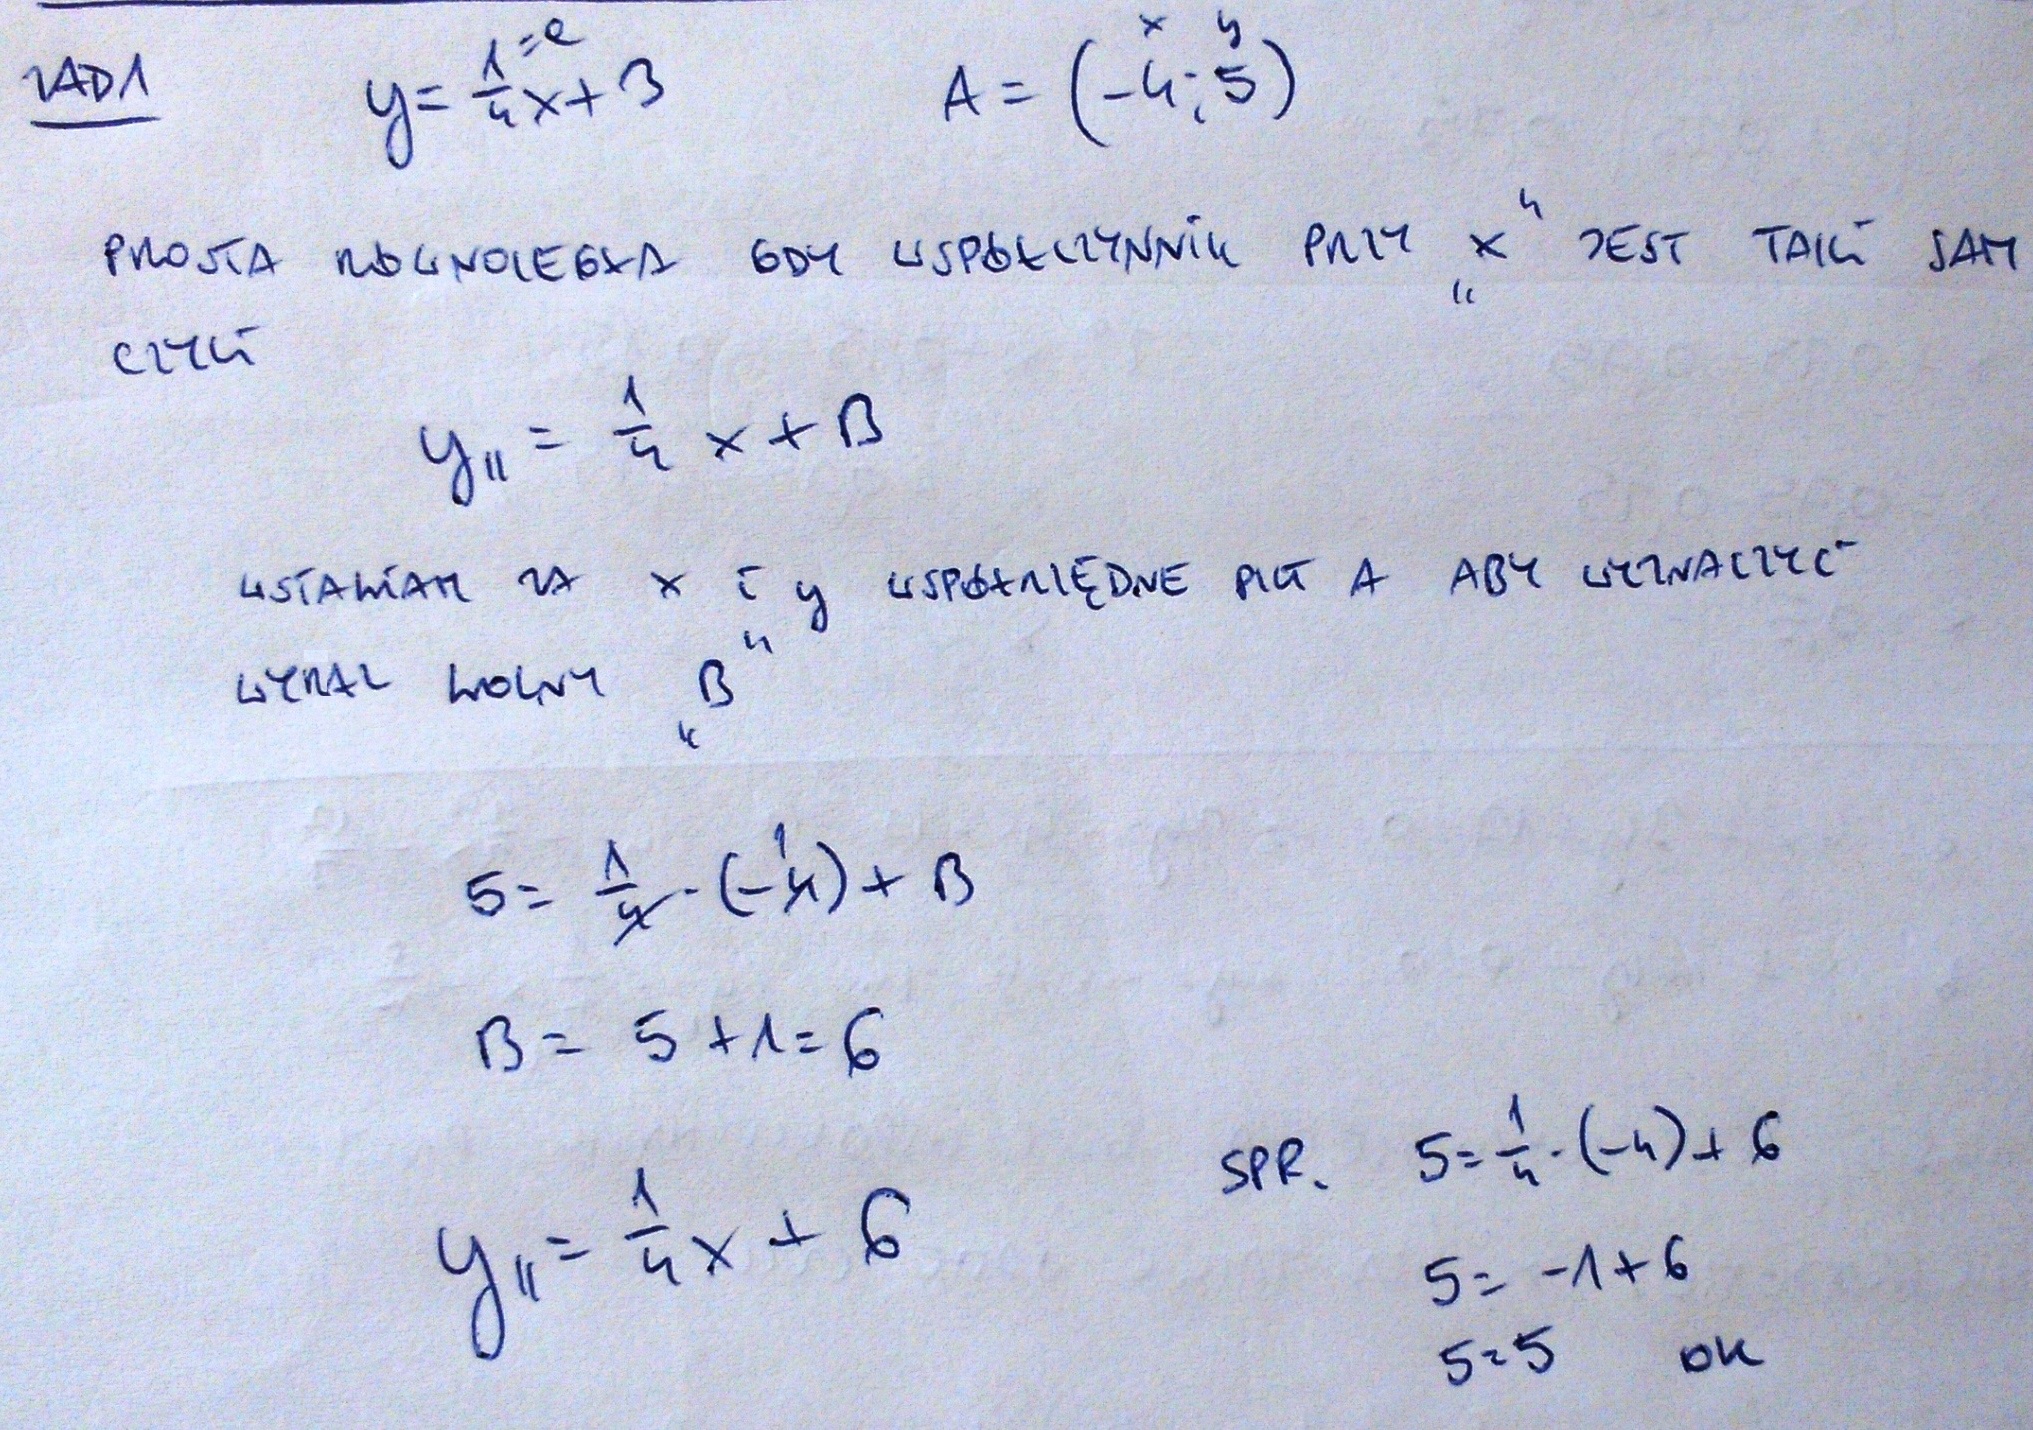 ZAD1 y = 1/4 x + 3 A = (-4; 5)
PROSTA RÓWNOLEGŁA GDY WSPÓŁCZYNNIK PRZY „x" JEST TAKI SAM
CZYLI
y₁₁ = 1/4 x + B
WSTAWIAM ZA x i y WSPÓŁRZĘDNE PKT A ABY WYZNACZYĆ
WYRAZ WOLNY „B"
5 = 1/4 · (-4) + B
B = 5 + 1 = 6
y₁₁ = 1/4 x + 6
SPR. 5 = 1/4 · (-4) + 6
5 = -1 + 6
5 = 5 OK